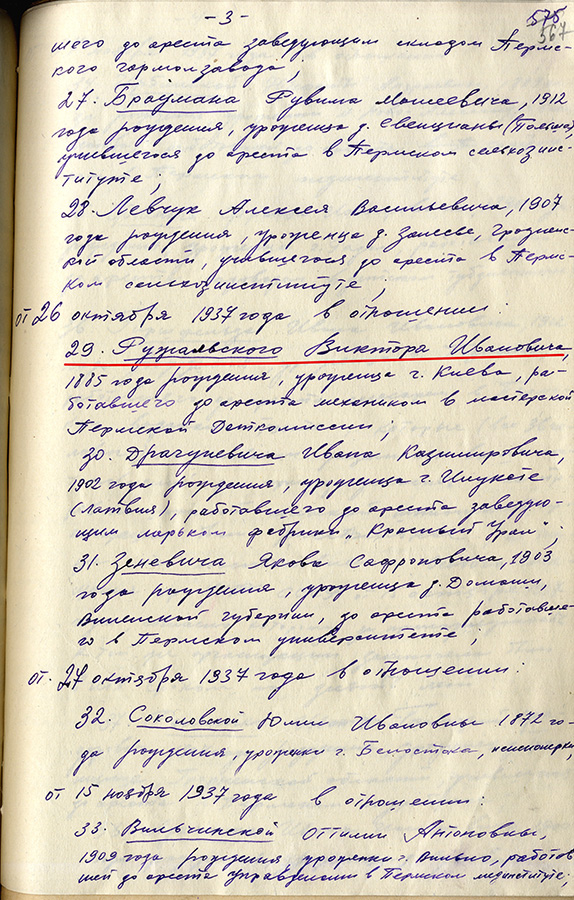 - 3 -
575
567
шего до ареста заведующим складом Перм-
ского гормолзавода;
27. Браумана Рувима Моисеевича, 1912
года рождения, уроженца д. Свенцианы (Польша),
учившегося до ареста в Пермском сельхозинс-
титуте;
28. Левчук Алексея Васильевича, 1907
года рождения, уроженца д. Залесье, Гроднен-
ской области, учившегося до ареста в Перм-
ком сельхозинституте;
от 26 октября 1937 года в отношении:
29. Ружаловского Виктора Ивановича,
1885 года рождения, уроженца г. Киева, ра-
ботавшего до ареста механиком в мастерской
Пермской Деткомиссии;
30. Драгуневича Ивана Казимировича,
1902 года рождения, уроженца г. Илуксте
(Латвия), работавшего до ареста заведую-
щим ларьком фабрики „Красный Урал";
31. Зеневича Якова Сафроновича, 1903
года рождения, уроженца д. Домаши,
Виленской губернии, до ареста работавше-
го в Пермском университете;
от 27 октября 1937 года в отношении:
32. Соколовской Юлии Ивановны 1872 го-
да рождения, уроженки г. Белостока, пенсионерки;
от 15 ноября 1937 года в отношении:
33. Вильчинской Оттилии Антоновны,
1909 года рождения, уроженки г. Вильно, работав-
шей до ареста управделами в Пермском мединституте;